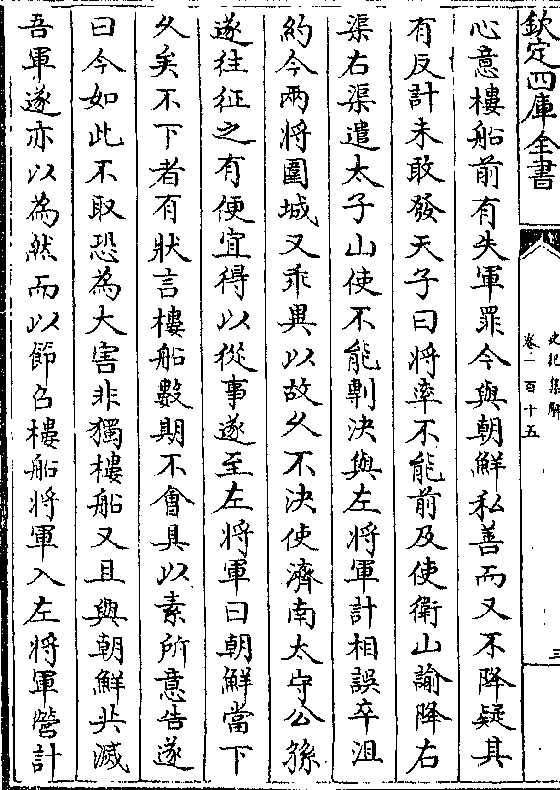 欽定四庫全書
史記集解
卷一百十五
三
心意樓船前有失軍罪今與朝鮮私善而又不降疑其
有反計未敢發天子曰將率不能前及使衛山諭降右
渠右渠遣太子山使不能剸決與左將軍計相誤卒沮
約今兩將圍城又乖異以故久不決使濟南太守公孫
遂往征之有便宜得以從事遂至左將軍曰朝鮮當下
久矣不下者有狀言樓船數期不會具以素所意告遂
曰今如此不取恐為大害非獨樓船又且與朝鮮共滅
吾軍遂亦以為然而以節召樓船將軍入左將軍營計